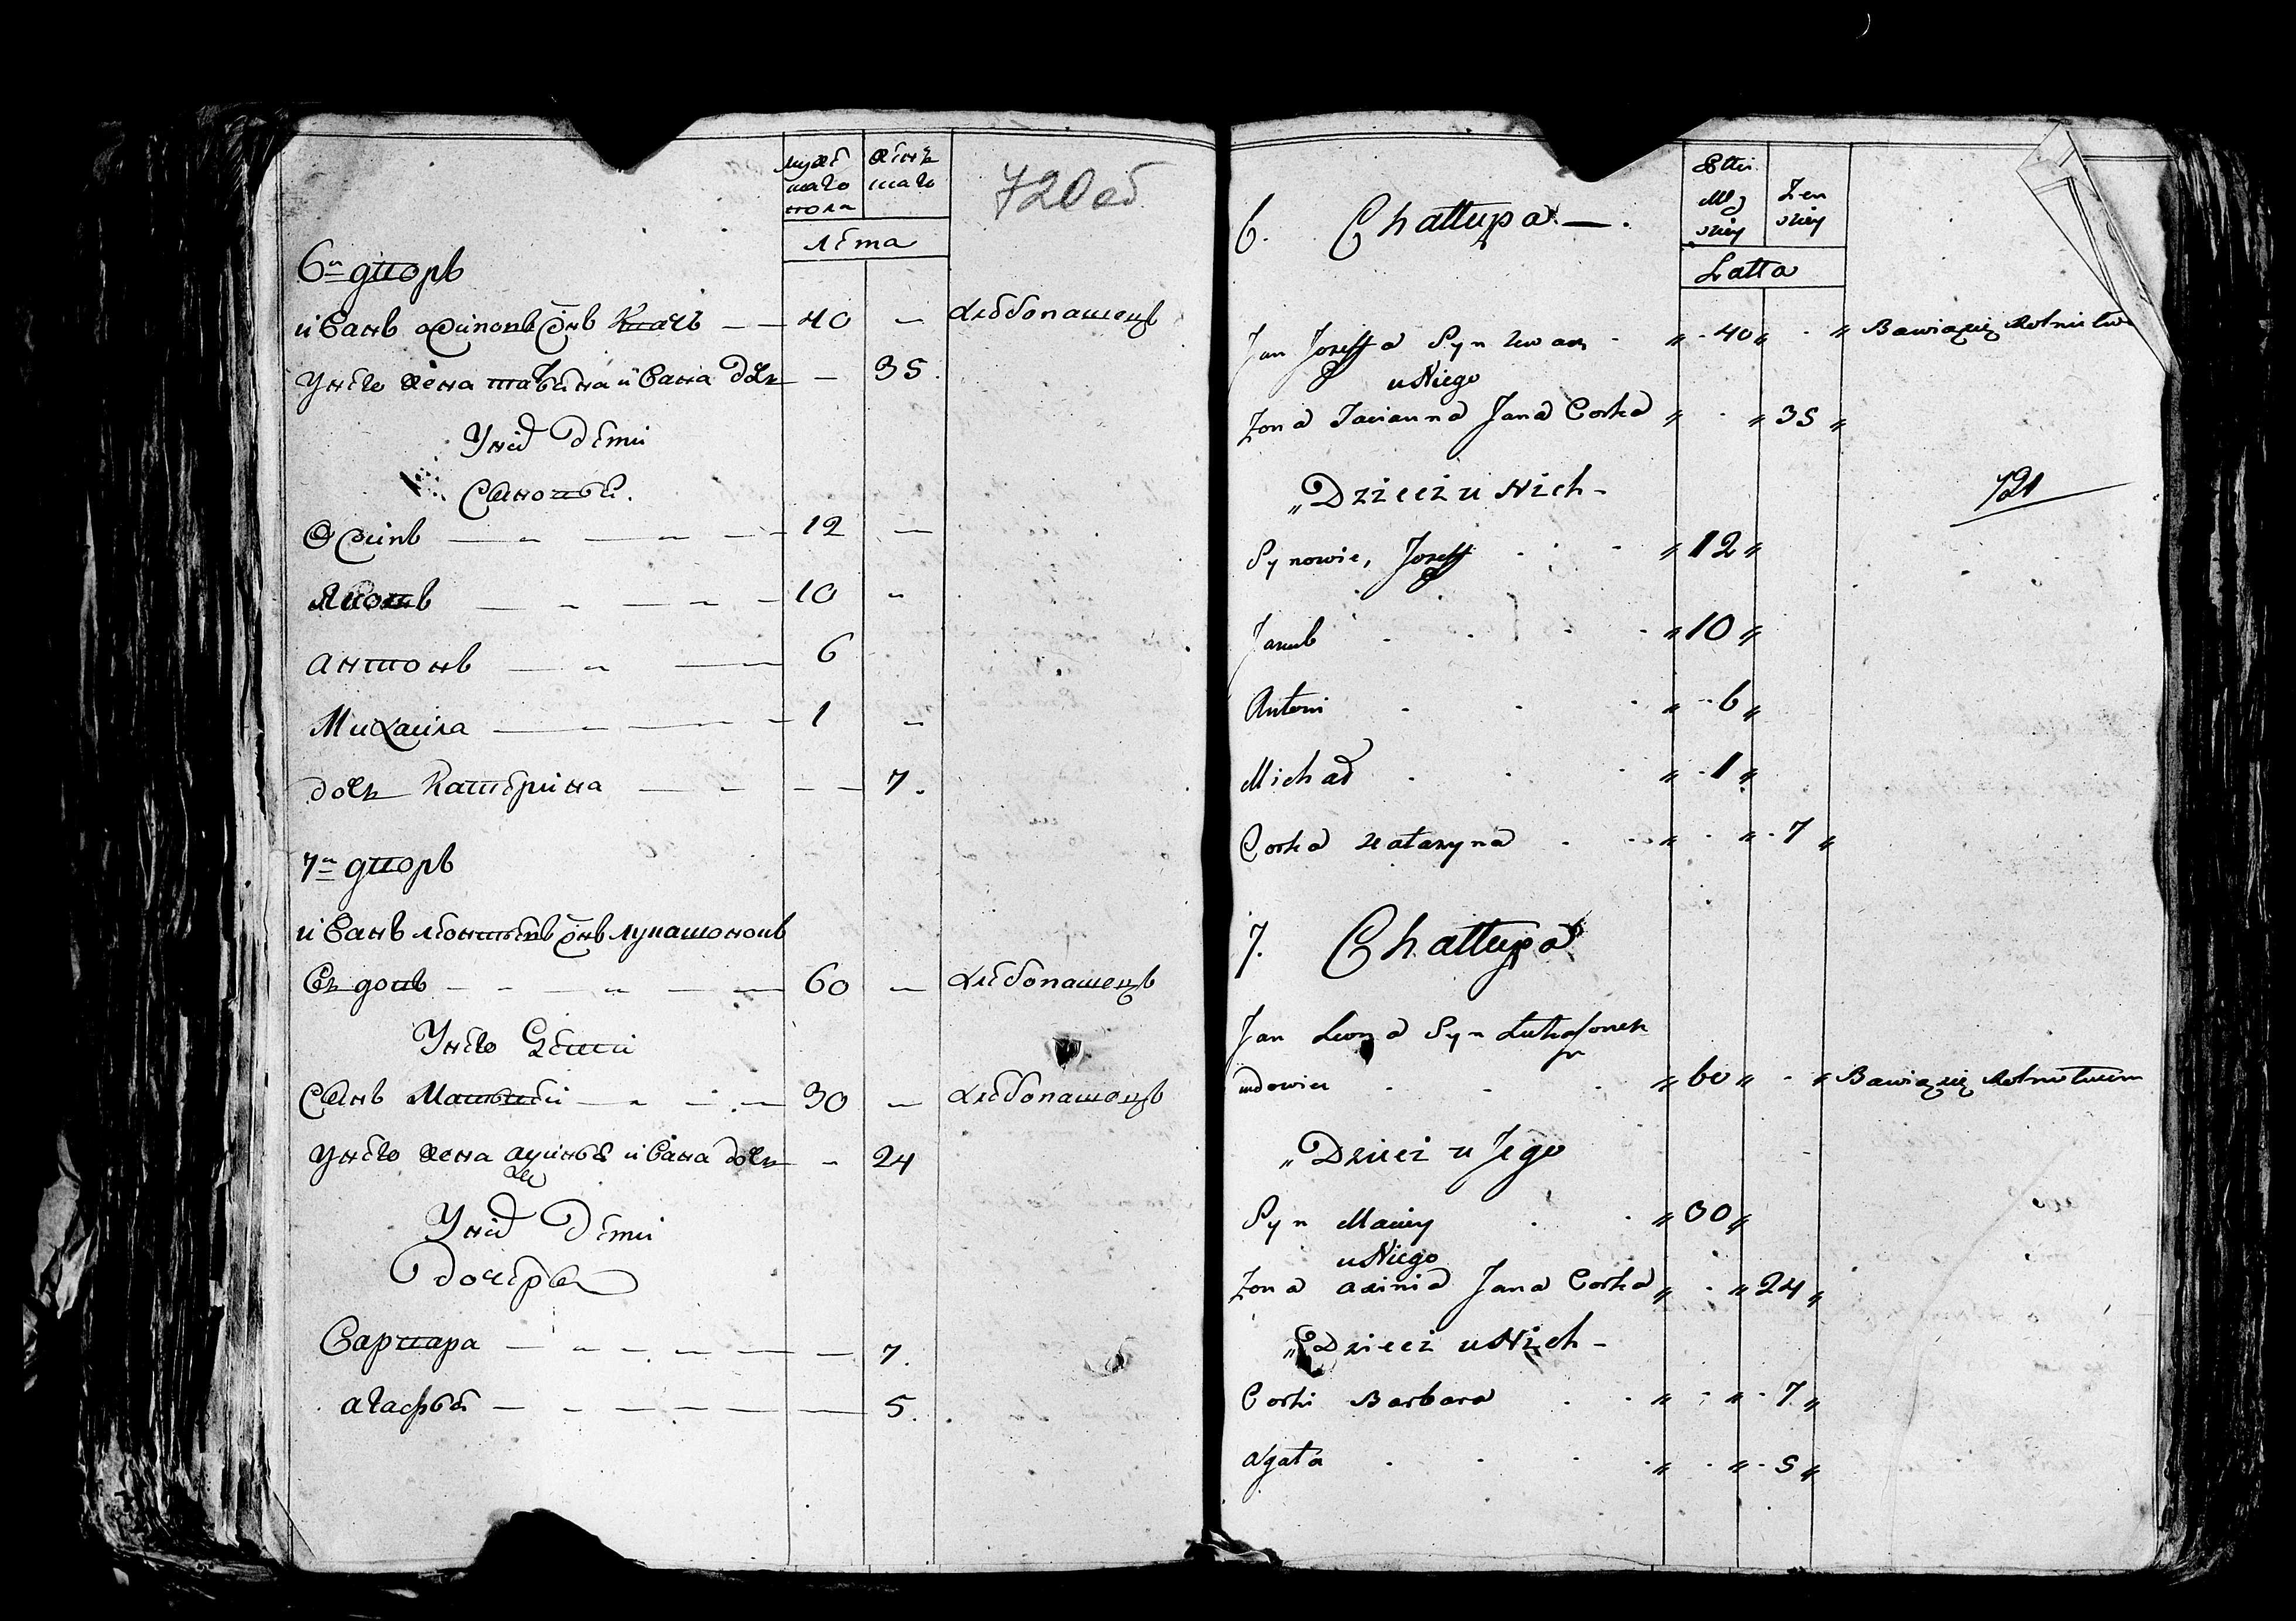 мужескаго пола
женскаго
лѣта
720 об
6й дворъ
иванъ осиповъ снъ Квачъ 40 — хлебопашецъ
унего жена татьяна ивана дочь — 35
Уних дети
Сыновья.
Осипъ 12 —
Яковъ 10 "
антонъ 6
Михаила 1 "
дочь катерина 7.
7й дворъ
иванъ леонтьевъ снъ лукашонокъ
вдовъ 60 — хлебопашецъ
Унего Дети
Сынъ Матвей 30 — хлебопашецъ
унего жена аксинья ивана дочь 24
Уних Дети
дочери
варвара 7.
агафья 5.
Płci
Męzkiey
Żenskiey
Latta
6. Chałłupa
Jan Jozeffa Syn Kwacz 40 Bawiący się Rolnictwem
u Niego
Żona Tacianna Jana Corka 35
Dzieci u Nich
721
Synowie, Jozeff 12
Jakub 10
Antoni 6
Michał 1
Corka Katarzyna 7
7. Chałłupa
Jan Leona Syn Łukaszonek
wdowiec 60 Bawiący się Rolnictwem
Dzieci u Jego
Syn Maciey 30
u Niego
Żona axinia Jana Corka 24
Dzieci u Nich
Corki Barbara 7
Agata 5